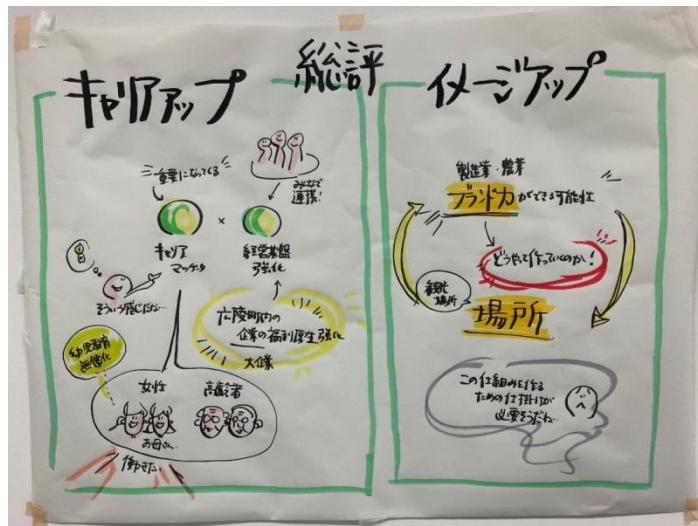 総評
キャリアアップ
重要になってくる
みんなで
連携!
キャリア
×
経営基盤
強化
そういう感じだな…
広陵町内の
企業の福利厚生強化
大企業
幼児教育
無償化
女性
高齢者
お母さん
働きたい
イメージアップ
製造業・農業
ブランド力ができる可能性
どうやって作っていくのか!
観光
場所
場所
この仕組みを作る
ための仕掛けが
必要そうだね…